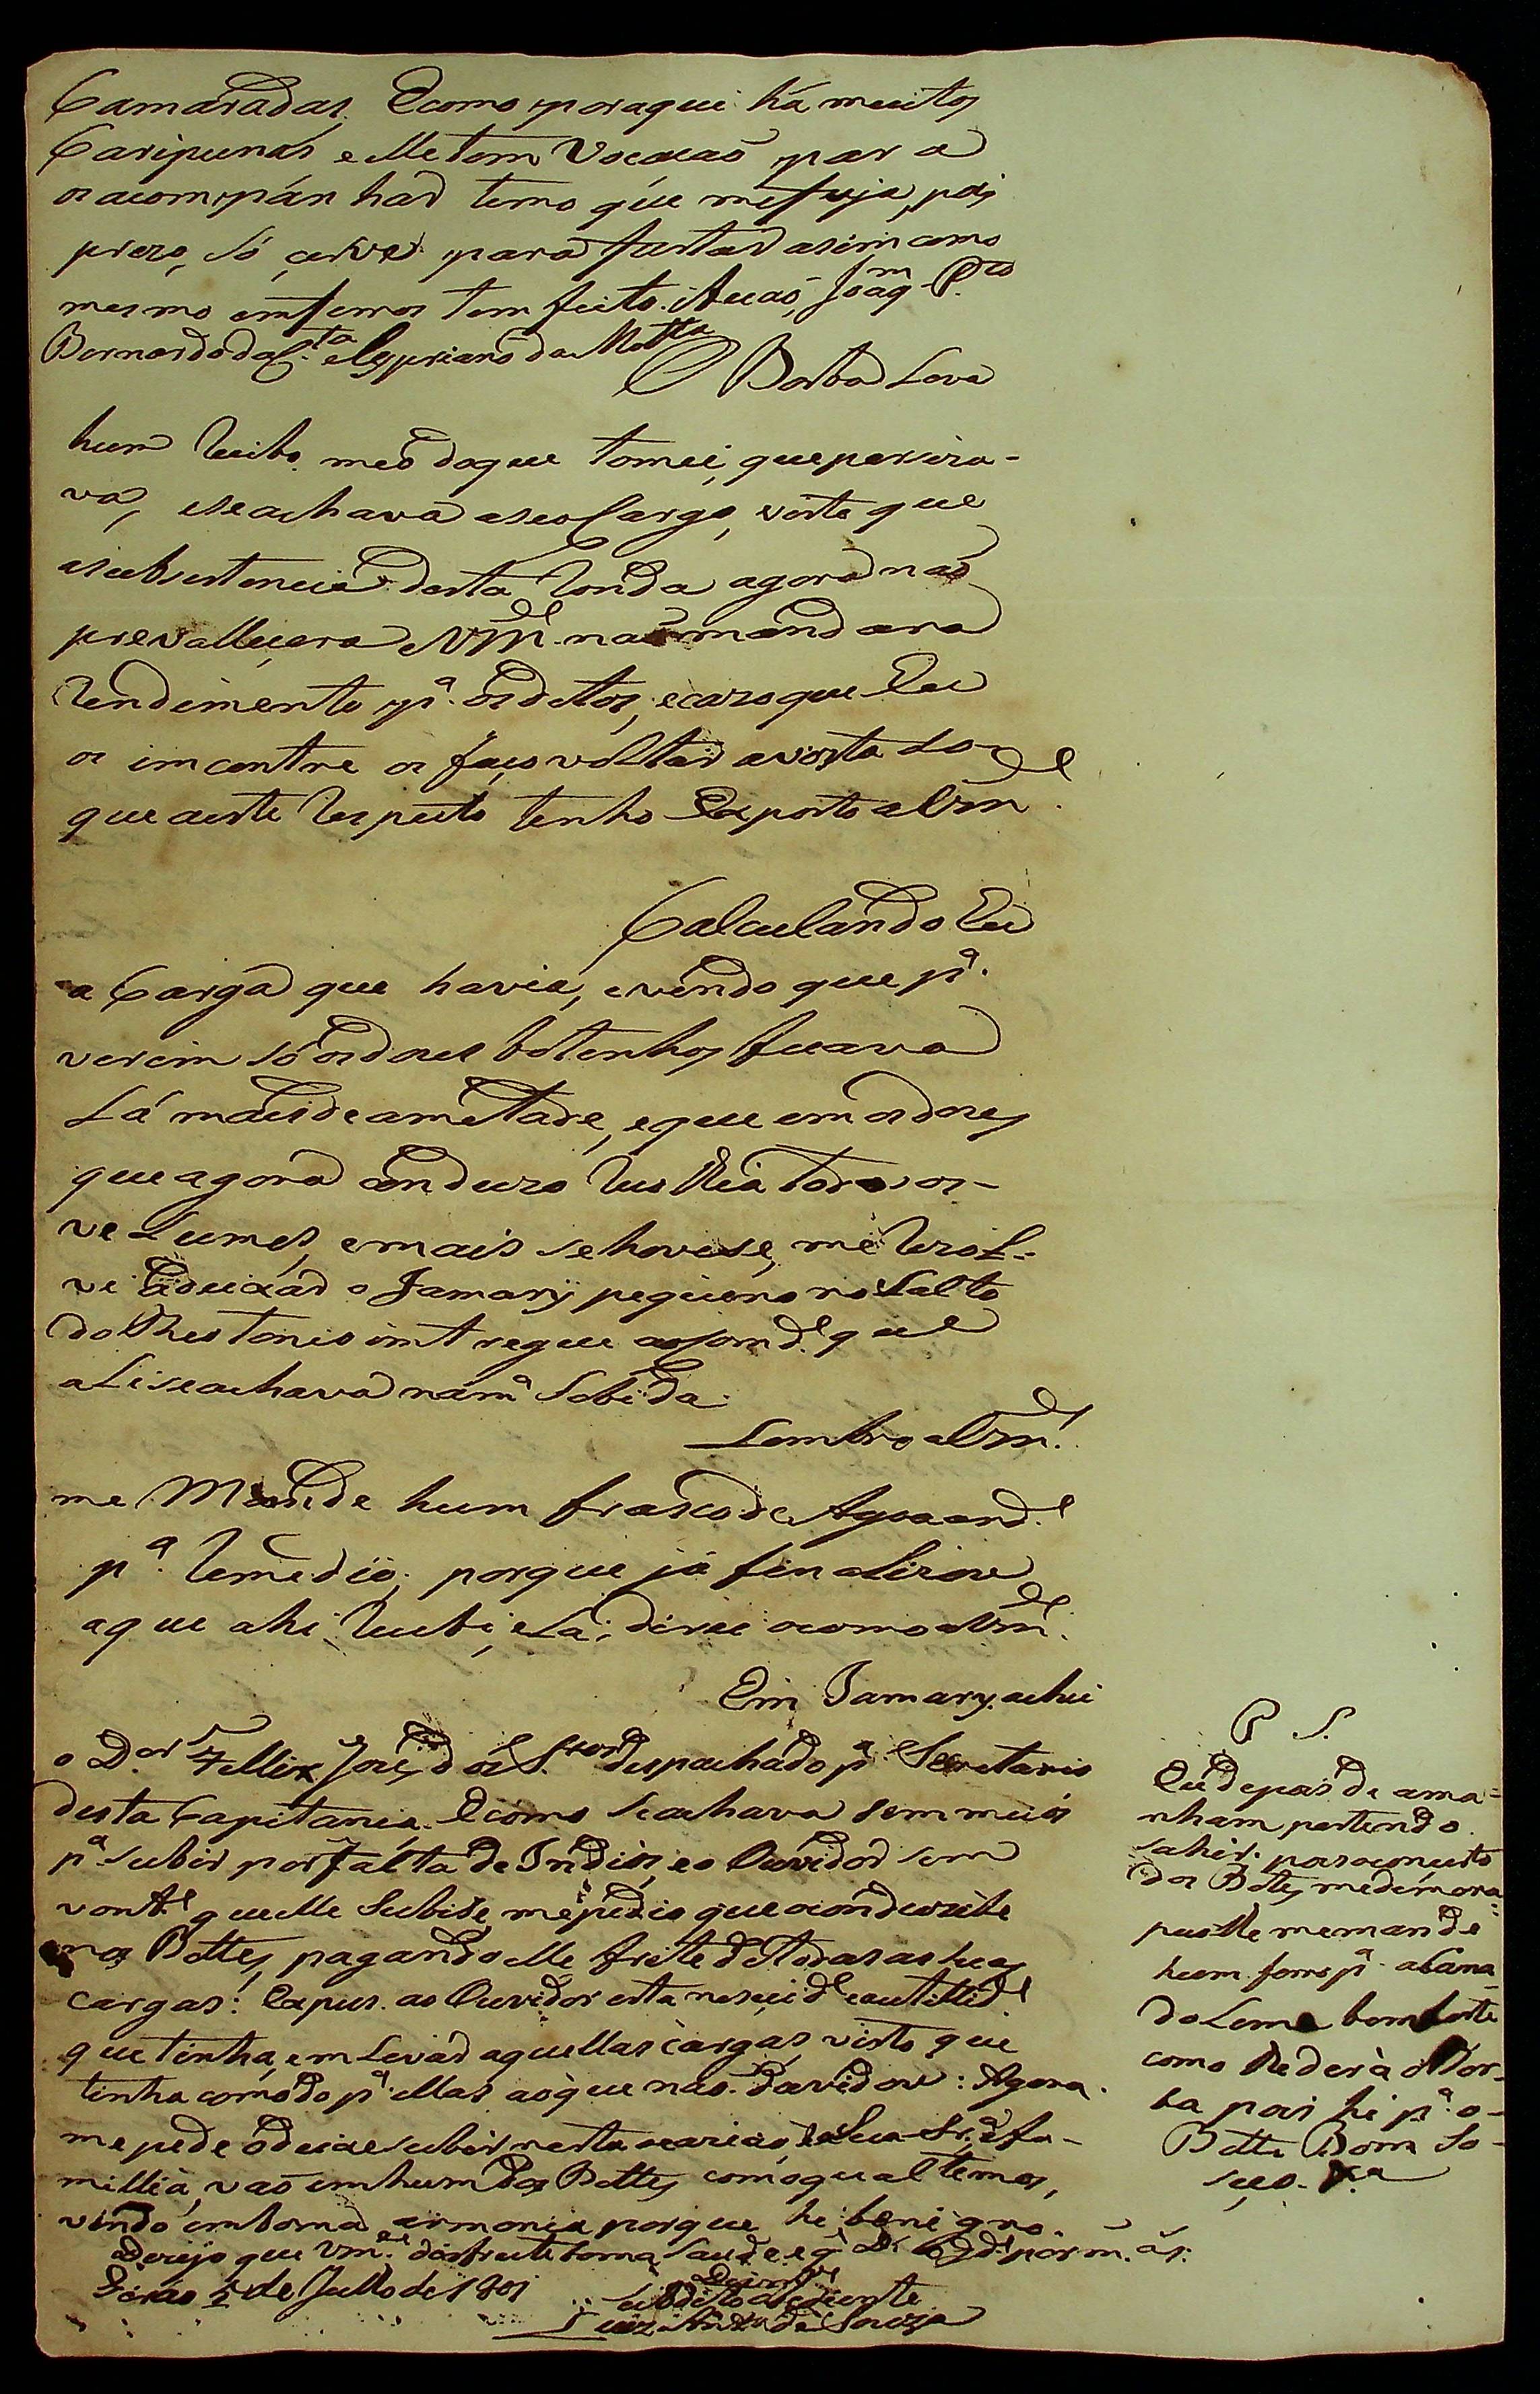 Camaradas, Ecomo poraqui há muitos
Caripunás e elle tem Vocacaõ para
os acompánhar temo que me fuja, pois
prezo, só serve para furtar asim como
mesmo em ferros tem feito. Joaq.m P.to
Bernardo da C.ta e Cypriano da Motta
O Borba Leva
hum Recibo meo doque tomei, que perciza-
va, eseachava aseo Cargo, visto que
asubsistencia desta Ronda agora naõ
prevallecera e VM.ce naõ mandara
Rendimento p.a os ditos, ecazo que Eu
os imcontre os faço voltar avista do
que aeste Respeito tenho Exposto a Vm.ce
Calculando Eu
a Carga que havia, evendo que p.a
virem só os dous botinhos ficava
Lá mais de ametade, eque em os dous
que agora conduzo Recolhia todos os
volumes, emais sehouvese, me Rezol-
vi a deixar o Jamary pequeno no Salto
do Theotonio imtregue ao Com.de que
ali seachava na m.a Sobida.
Lembro a Vm.ce
me Mande hum frasco de Agoa ard.e
p.a Remedio; porque já finalizou
aque ahi Recebi, e Lá; dice o como a Vm.ce
Em Jamary achei
o D.or Fellix José dos S.tos despachado p.a Secretario
desta Capitania. Ecomo seachava sem meios
p.a subir por falta de Indios, eo Ouvidor sem
vont.e quelle Subise, me pedio que o conduzise
nos Bottes, pagando elle frete de todas as suas
cargas: Expus ao Ouvidor esta nescid.e e autillid.e
que tinha, em Levar aquellas cargas, visto que
tinha comodo p.a ellas, aoque naõ duvidou: Agora
me pede o deixe subir nesta ocaziaõ, e Sua Sr.a e fa-
millia, vaõ em hum dos Bottes, como qual temos,
vindo em boma armonia porque he benigno.
Dezejo que Vm.ce disfrute boma saude e q.e D.s G.de por m. an.s
Giráo 5 de Julho de 1801
De Vm.ce
Subdito obediente
Luiz Ant.o de Souza
P S.
Eu depois de ama-
nham pertendo
sahir. poroconcerto
dos Bottes medemora
peço lhe memande
hum ferro p.a a Cana
do Leme bem forte
como lhe dirá o Bor-
ba pois hé p.a o
Botte Bom So-
seço. &.a